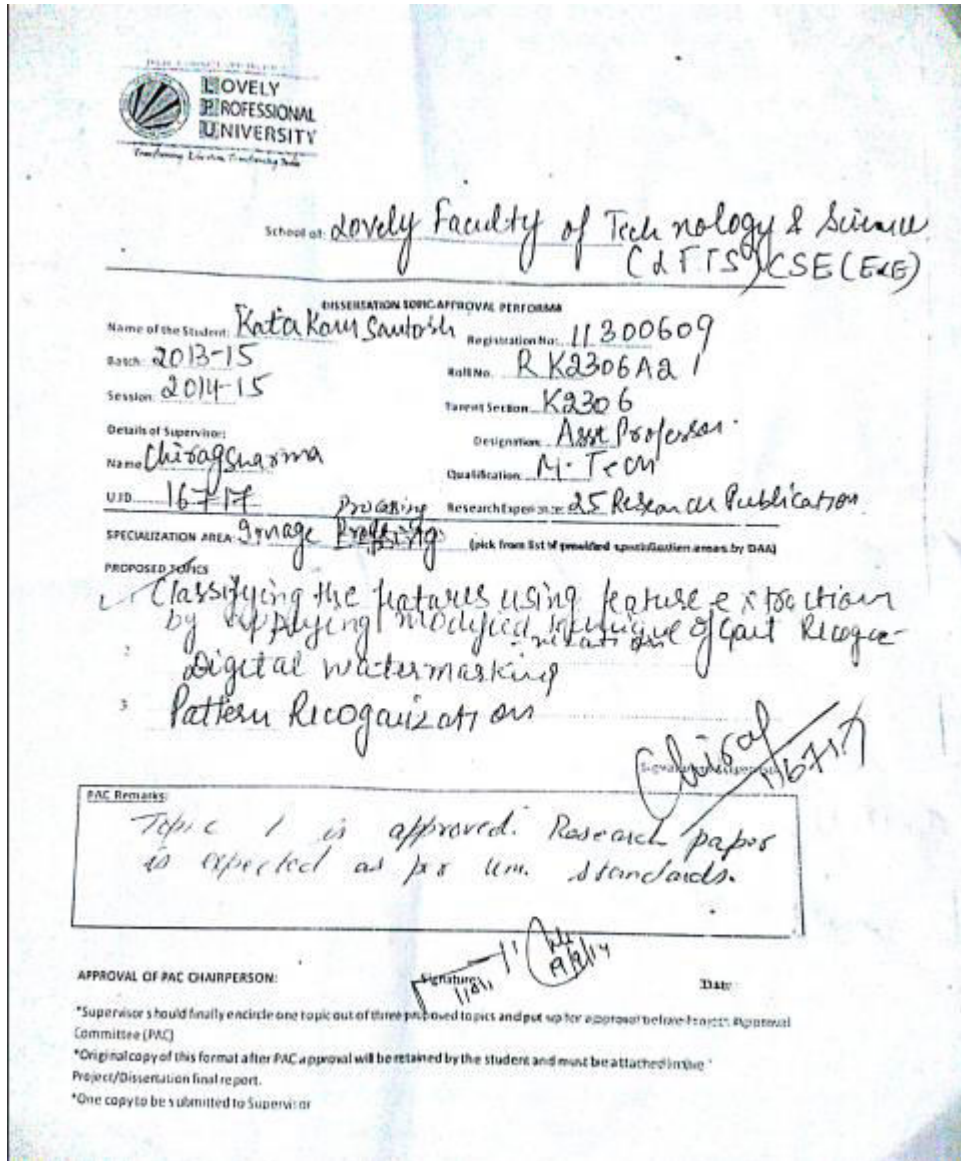 LOVELY
PROFESSIONAL
UNIVERSITY
Transforming Education Transforming India
School of: Lovely Faculty of Technology & Science
(LFTS) CSE(E&E)
DISSERTATION TOPIC APPROVAL PERFORMA
Name of the Student: Kata Kam Santosh Registration No: 11300609
Batch: 2013-15 Roll No. RK2306A21
Session: 2014-15 Parent Section: K2306
Details of Supervisor: Designation: Asst Professor.
Name Chirag Sharma Qualification: M.Tech
U.ID 16717 Research Experience: 25 Research Publication
Processing
SPECIALIZATION AREA: Image (pick from list of provided specialization areas by DAA)
PROPOSED TOPICS
1 Classifying the features using feature extraction
by applying modified technique of Gait Recogn-
2 Digital watermarking
3 Pattern Recoganization
Chirag
16717
Signature of Supervisor
PAC Remarks:
Topic 1 is approved. Research paper
is expected as per uni. standards.
APPROVAL OF PAC CHAIRPERSON: Signature: Date:
*Supervisor should finally encircle one topic out of three proposed topics and put up for approval before Project Approval
Committee (PAC)
*Original copy of this format after PAC approval will be retained by the student and must be attached in the
Project/Dissertation final report.
*One copy to be submitted to Supervisor